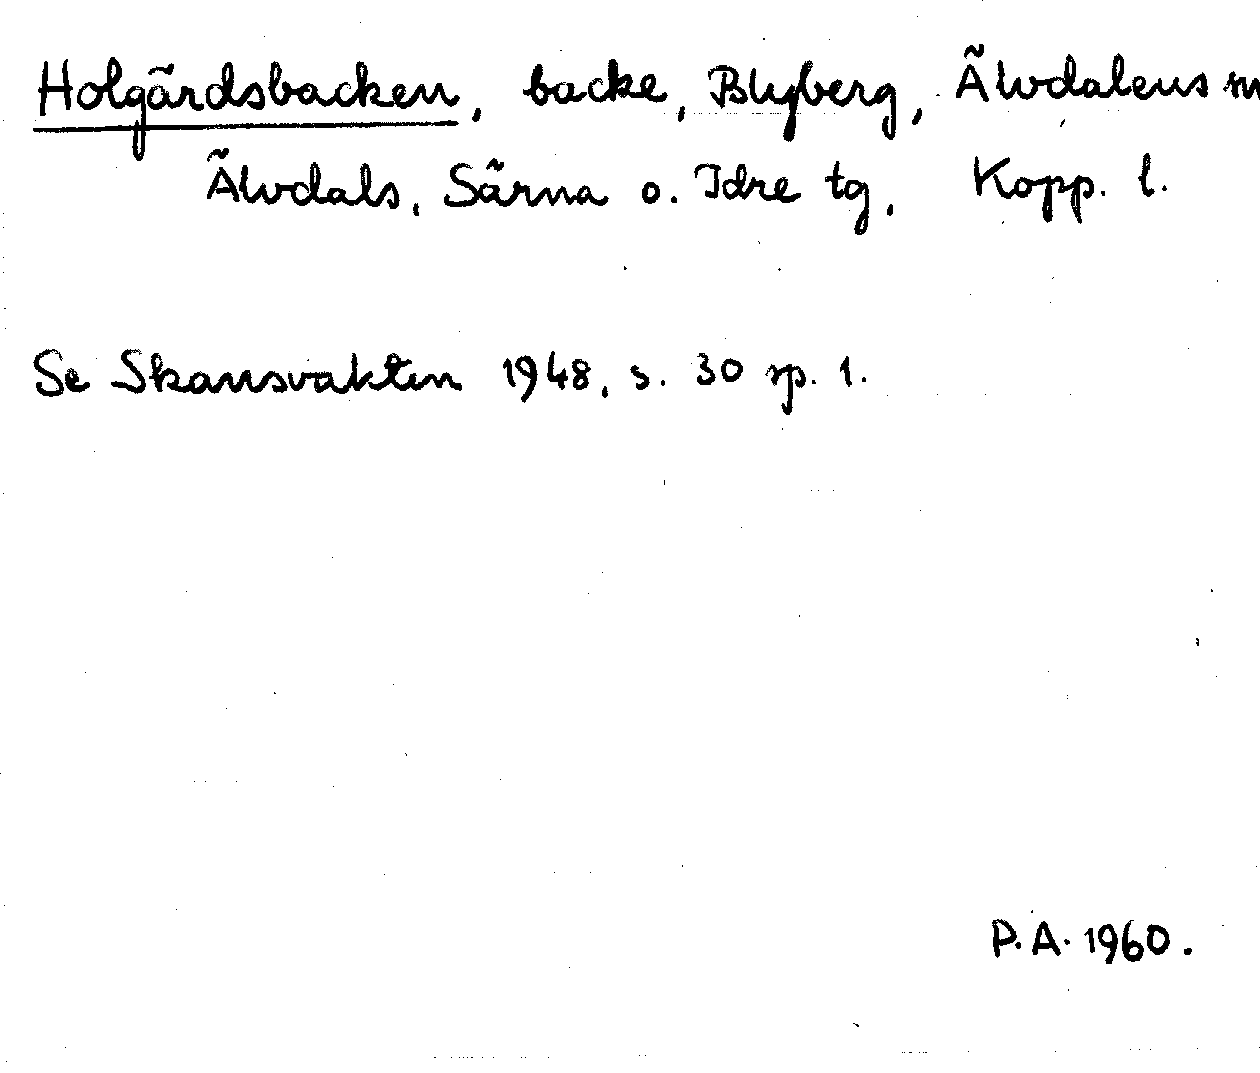 Holgärdsbacken, backe, Blyberg, Älvdalens
Älvdals, Särna o. Idre tg, Kopp. l.
Se Skansvakten 1948, s. 30 sp. 1.
P. A. 1960.